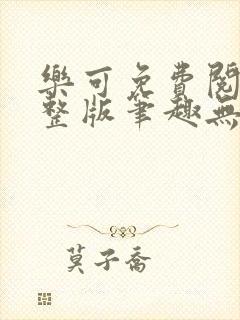 樂可免費閱
整版筆趣無
莫子喬